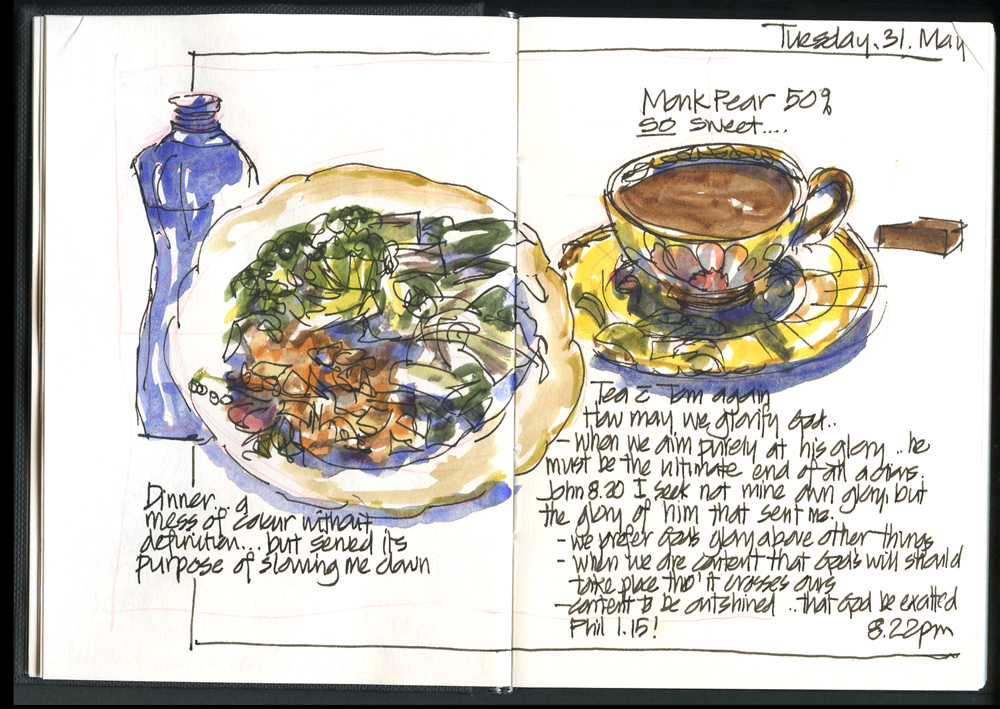 Tuesday. 31. May
Monk Pear 50%
SO sweet....
Dinner... a
mess of colour without
definition... but served its
purpose of slowing me down
Tea c̄ Tom again
How may we glorify God..
- when we aim purely at his glory .. he
must be the ultimate end of all actions.
John 8.20 I seek not mine own glory, but
the glory of him that sent me.
- we prefer God's glory above other things
- when we are content that God's will should
take place tho' it crosses ours
- content to be outshined .. that God be exalted
Phil 1.15!
8.22pm